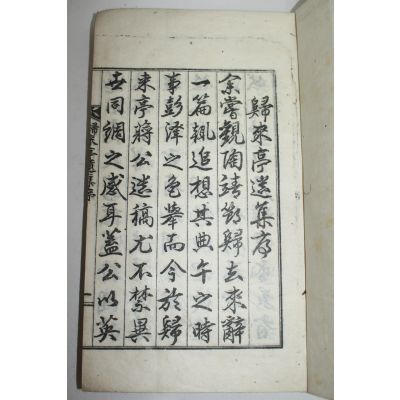 歸來亭遺集序
余嘗觀陶靖節歸去來辭
一篇輒追想其典午之時
事彭澤之色舉而今於歸
来亭蔣公遺稿尤不禁異
世同調之感耳蓋公以英
歸來亭遺集序
一